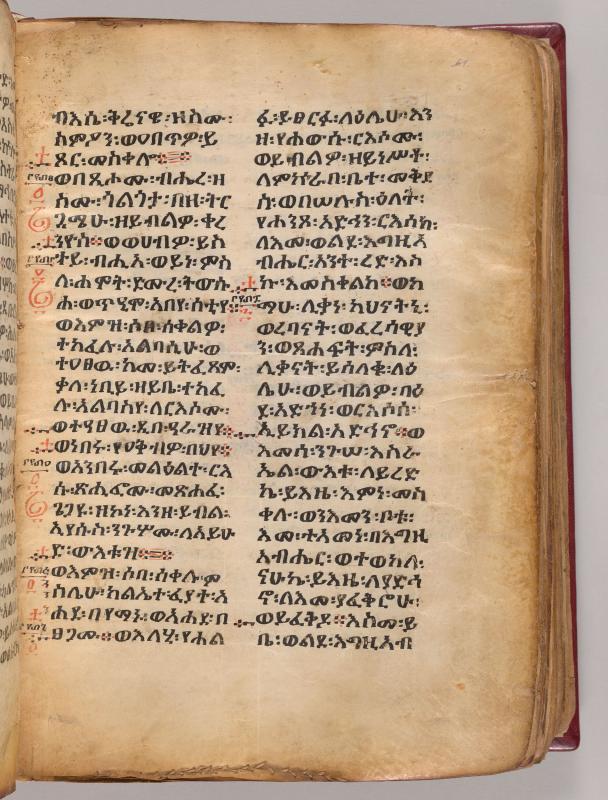 ብእሴ፡ቅሬናዊ፡ዘስሙ፡
ስምዖን፡ወዐበጥዎ፡ይ
ጹር፡መስቀሎ፨
ወበጺሖሙ፡ብሔረ፡ዘ
ስሙ፡ጎልጎታ፡በዘ፡ትር
ጓሜሁ፡ዘይብልዎ፡ቀረ
ንዮስ፨ወወሀብዎ፡ይስ
ተይ፡ብሒአ፡ወይነ፡ምስ
ለ፡ሐሞት፡ድሙረ፡ትውሱ
ሐ፡ወጥዒሞ፡አበየ፡ሰትየ፨
ወእምዝ፡ሶበ፡ሰቀልዎ፡
ተካፈሉ፡አልባሲሁ፡ወ
ተዐፀዉ፡ከመ፡ይትፈጸም፡
ቃለ፡ነቢይ፡ዘይቤ፡ተካፈ
ሉ፡አልባስየ፡ለርእሶሙ፡
ወተዓፀዉ፡ዲበ፡ዓራዝየ፨
ወነበሩ፡የዐቅብዎ፡በህየ፨
ወአንበሩ፡መልዕልተ፡ርእ
ሱ፡ጽሒፎሙ፡መጽሐፈ፡
ጌጋዩ፡ዘኮነ፡እንዘ፡ይብል፡
ኢየሱስ፡ንጉሦሙ፡ለአይሁ
ድ፡ውእቱዝ፨
ወእምዝ፡ሶበ፡ሰቀሉ፡ም
ስሌሁ፡ክልኤተ፡ፈያተ፡አ
ሐደ፡በየማኑ፡ወአሐደ፡በ
ፀጋሙ፨ወእለሂ፡የሐል
ፉ፡ይፀርፉ፡ለዕሌሁ፡እን
ዘ፡የሐውሱ፡ርእሶሙ፡
ወይብልዎ፡ዘይነሥቶ፡
ለምኵራበ፡ቤተ፡መቅደ
ስ፡ወበሠሉስ፡ዕለት፡
የሐንጾ፡አድኅን፡ርእሰከ፡
ለእመ፡ወልደ፡እግዚአ
ብሔር፡አንተ፡ረድ፡እስ
ኩ፡እመስቀልከ፨ወከ
ማሁ፡ሊቃነ፡ካህናትኒ፡
ወረባናት፡ወፈሪሳዊያ
ን፡ወጸሐፍት፡ምስለ፡
ሊቃናት፡ይሳለቁ፡ላዕ
ሌሁ፡ወይብልዎ፡ባዕ
ደ፡አድኀነ፡ወርእሶሰ፡
ኢይክል፡አድኅኖ፨ወ
እመሰ፡ንጉሠ፡እስራ
ኤል፡ውእቱ፡ለይረድ
ኬ፡ይእዜ፡እምነ፡መስ
ቀሉ፡ወንእመን፡ቦቱ፡
እመ፡ተአመነ፡በእግዚ
አብሔር፡ወተወከለ፡
ናሁኬ፡ይእዜ፡ለያድኅ
ኖ፡ለእመ፡ያፈቅሮሁ፡
ወይፈቅዶ፨እስመ፡ይ
ቤ፡ወልደ፡እግዚአብ